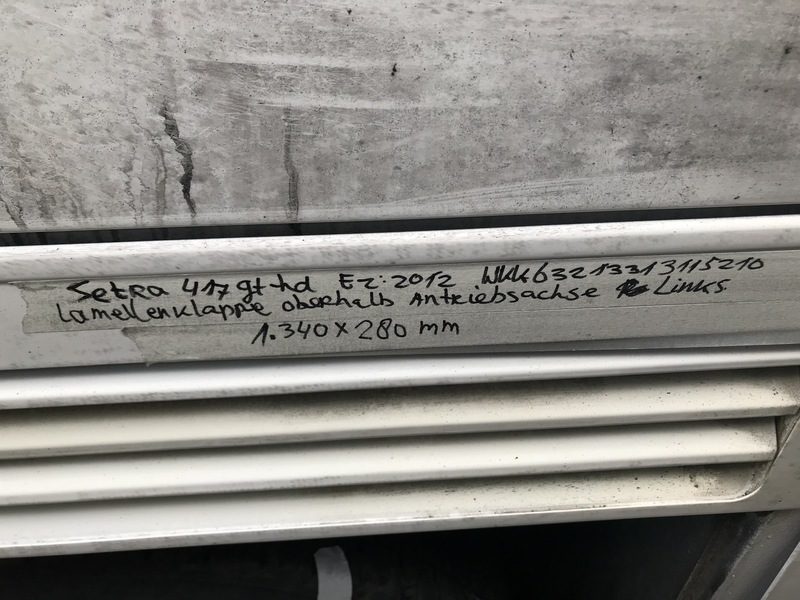 Setra 417 gt-hd Ez: 2012 WKK63213313115210
Lamellenklappe oberhalb Antriebsachse Links
1.340 x 280 mm